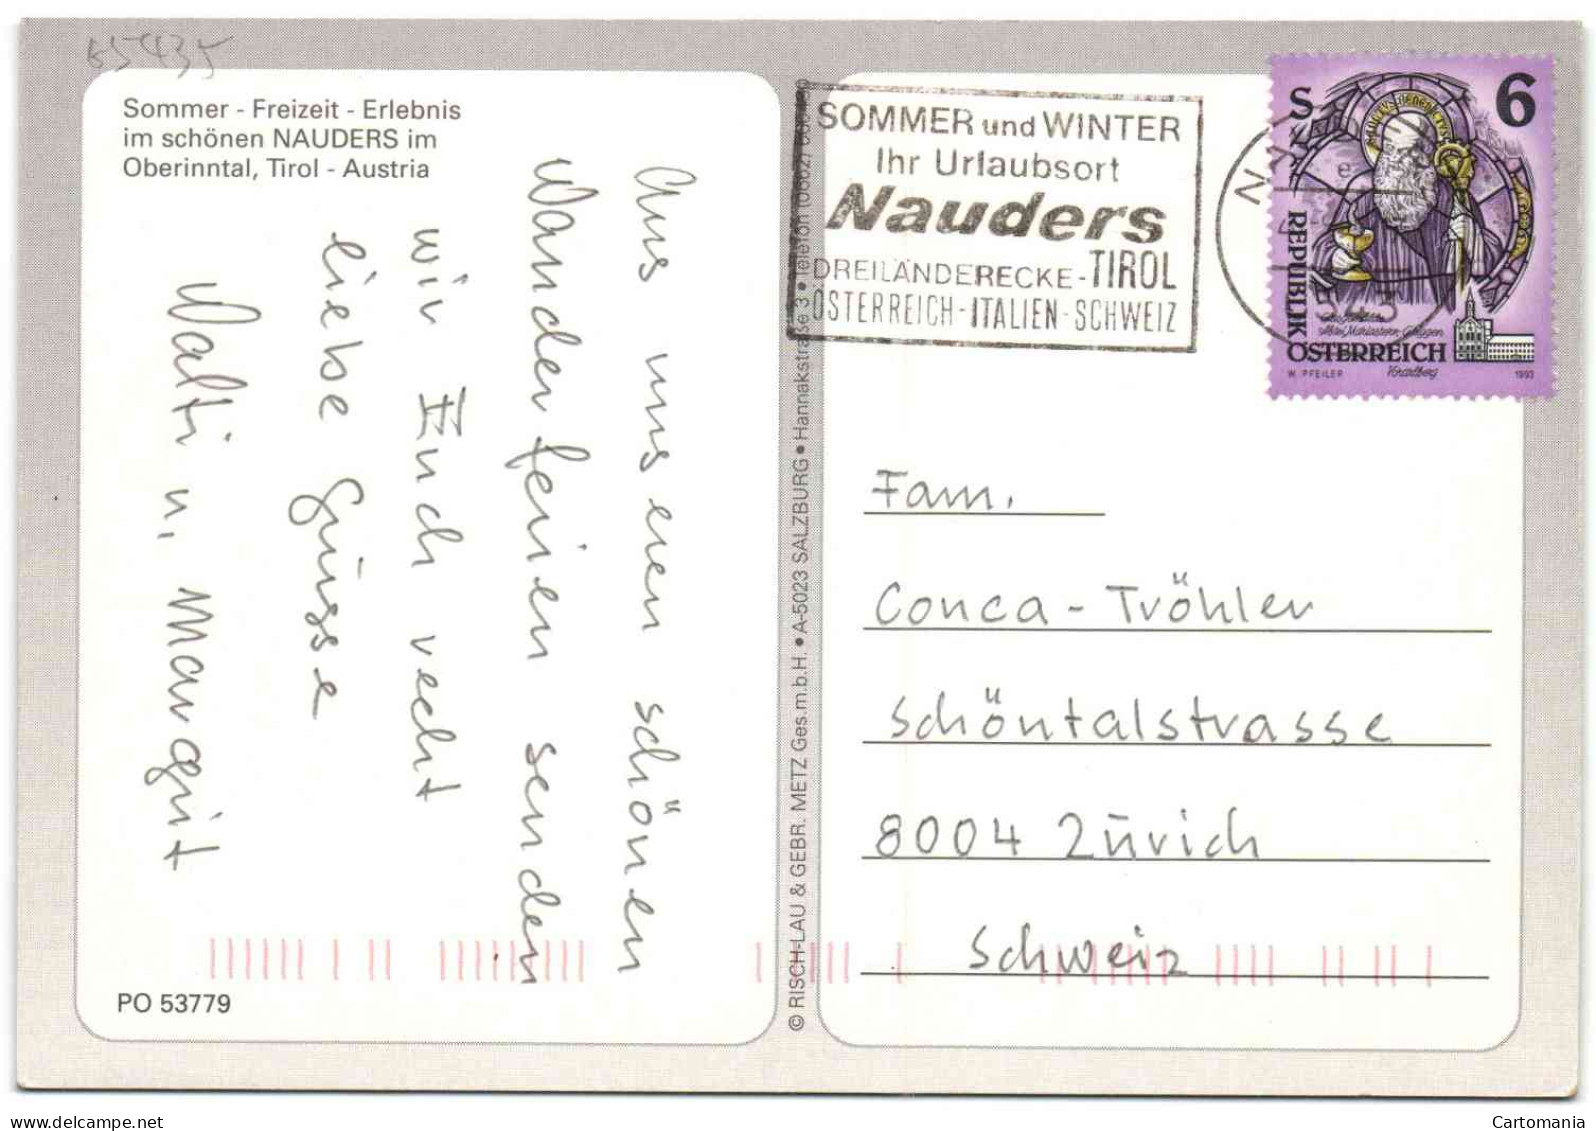 65435
Sommer - Freizeit - Erlebnis
im schönen NAUDERS im
Oberinntal, Tirol - Austria
Aus unseren schönen
Wanderferien senden
wir Euch recht
liebe Grüsse
Walti u. Margrit
PO 53779
© RISCH-LAU & GEBR. METZ Ges.m.b.H. • A-5023 SALZBURG • Hannakstraße 3 • Telefon (0662)
SOMMER und WINTER
Ihr Urlaubsort
Nauders
DREILÄNDERECKE-TIROL
ÖSTERREICH-ITALIEN-SCHWEIZ
S 6
REPUBLIK
ÖSTERREICH
W. PFEILER Vorarlberg 1993
Fam.
Conca-Tröhler
Schöntalstrasse
8004 Zürich
Schweiz
delcampe.net
Cartomania